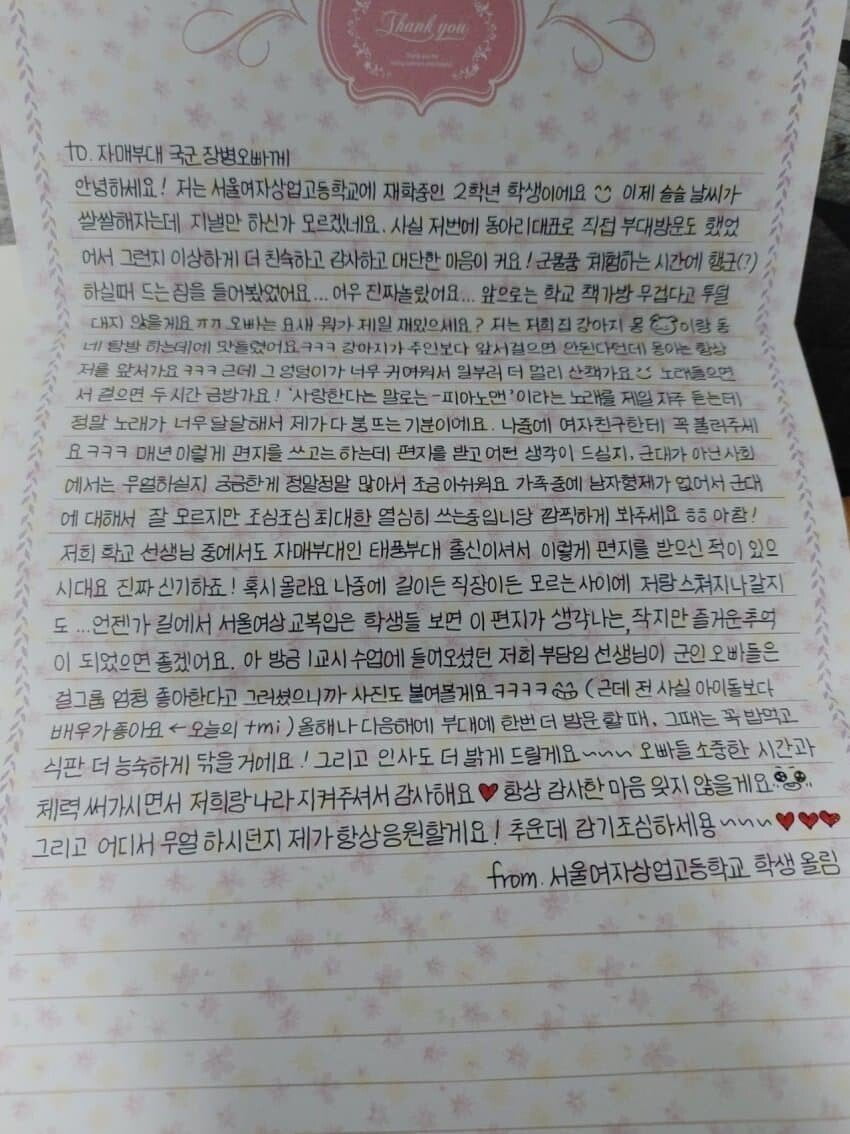 Thank you
to. 자매부대 국군 장병오빠께
안녕하세요! 저는 서울여자상업고등학교에 재학중인 2학년 학생이에요 이제 슬슬 날씨가
쌀쌀해지는데 지낼만 하신가 모르겠네요. 사실 저번에 동아리대표로 직접 부대방문도 했었
어서 그런지 이상하게 더 친숙하고 감사하고 대단한 마음이 커요! 군물품 체험하는 시간에 행군(?)
하실때 드는 짐을 들어봤었어요... 어우 진짜놀랐어요... 앞으로는 학교 책가방 무겁다고 투덜
대지 않을게요 ㅠㅠ 오빠는 요새 뭐가 제일 재밌으세요? 저는 저희집 강아지 몽이랑 동
네 탐방 하는데에 맛들렸어요ㅋㅋㅋ 강아지가 주인보다 앞서걸으면 안된다던데 몽이는 항상
저를 앞서가요ㅋㅋㅋ 근데 그 엉덩이가 너무 귀여워서 일부러 더 멀리 산책가요 노래들으면
서 걸으면 두시간 금방가요! '사랑한다는 말로는-피아노맨'이라는 노래를 제일 자주 듣는데
정말 노래가 너무 달달해서 제가 다 붕 뜨는 기분이에요. 나중에 여자친구한테 꼭 불러주세
요ㅋㅋㅋ 매년 이렇게 편지를 쓰고는 하는데 편지를 받고 어떤 생각이 드실지, 군대가 아닌 사회
에서는 무얼하실지 궁금한게 정말정말 많아서 조금 아쉬워요 가족중에 남자형제가 없어서 군대
에 대해서 잘 모르지만 조심조심 최대한 열심히 쓰는중입니당 깜찍하게 봐주세요 ㅎㅎ 아참!
저희 학교 선생님 중에서도 자매부대인 태풍부대 출신이셔서 이렇게 편지를 받으신 적이 있으
시대요 진짜 신기하죠! 혹시 몰라요 나중에 길이든 직장이든 모르는 사이에 저랑 스쳐지나갈지
도 ...언젠가 길에서 서울여상 교복입은 학생들 보면 이 편지가 생각나는, 작지만 즐거운추억
이 되었으면 좋겠어요. 아 방금 1교시 수업에 들어오셨던 저희 부담임 선생님이 군인 오빠들은
걸그룹 엄청 좋아한다고 그러셨으니까 사진도 붙여볼게요ㅋㅋㅋㅋ (근데 전 사실 아이돌보다
배우가 좋아요 ← 오늘의 tmi) 올해나 다음해에 부대에 한번 더 방문 할 때, 그때는 꼭 밥먹고
식판 더 능숙하게 닦을 거에요! 그리고 인사도 더 밝게 드릴게요~~~ 오빠들 소중한 시간과
체력 써가시면서 저희랑 나라 지켜주셔서 감사해요♥ 항상 감사한 마음 잊지 않을게요
그리고 어디서 무얼 하시던지 제가 항상 응원할게요! 추운데 감기조심하세용~~~♥♥♥
from. 서울여자상업고등학교 학생 올림